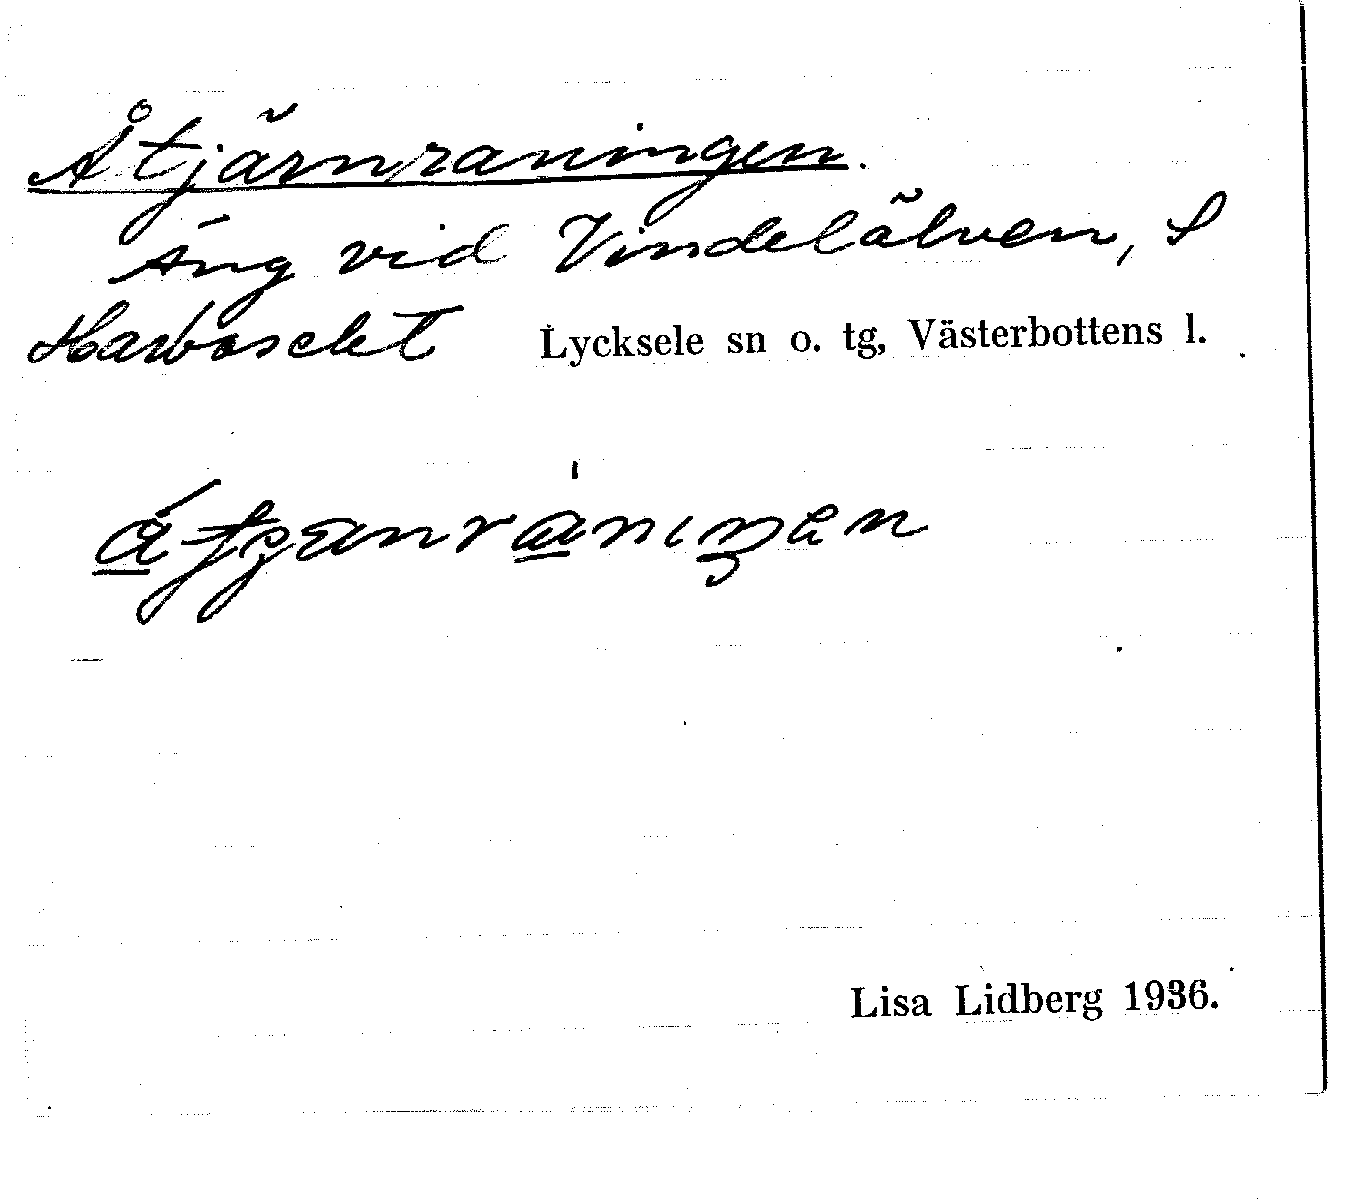 Åtjärnraningen.
Äng vid Vindelälven, S
Harvaselet Lycksele sn o. tg, Västerbottens l.
Lisa Lidberg 1936.